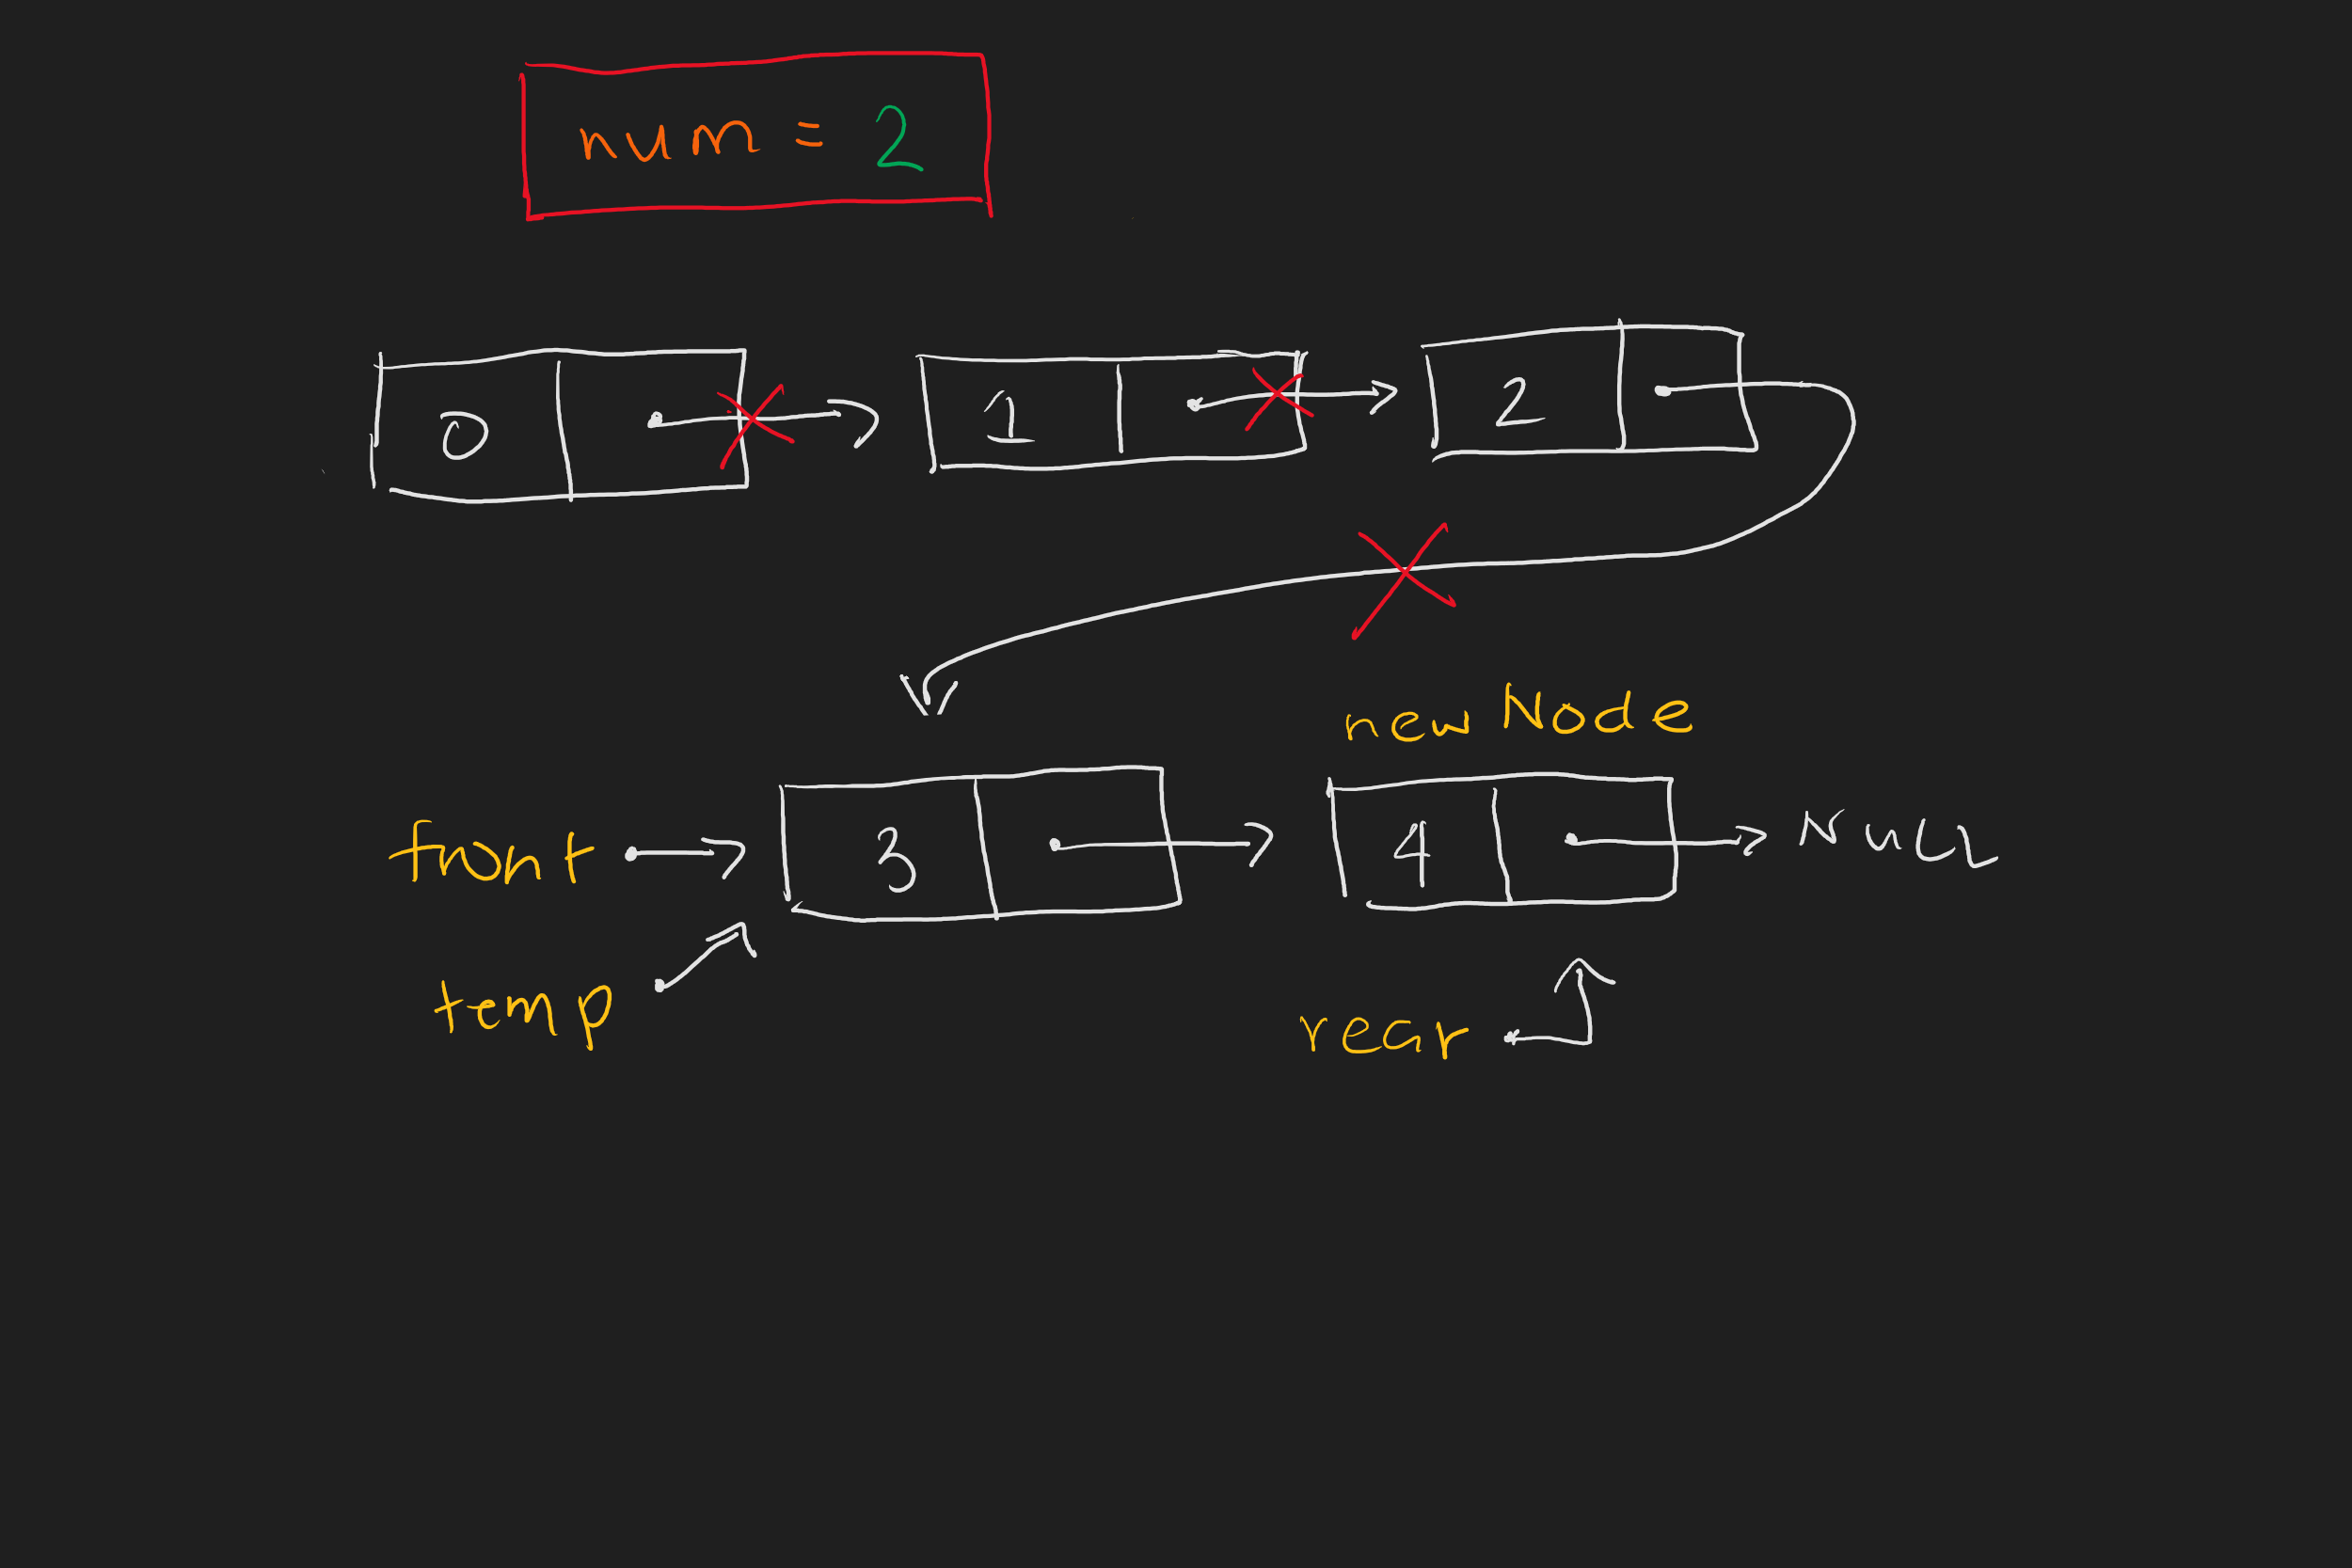 num = 2
0 1 2
newNode
front 3 4 NULL
temp
rear